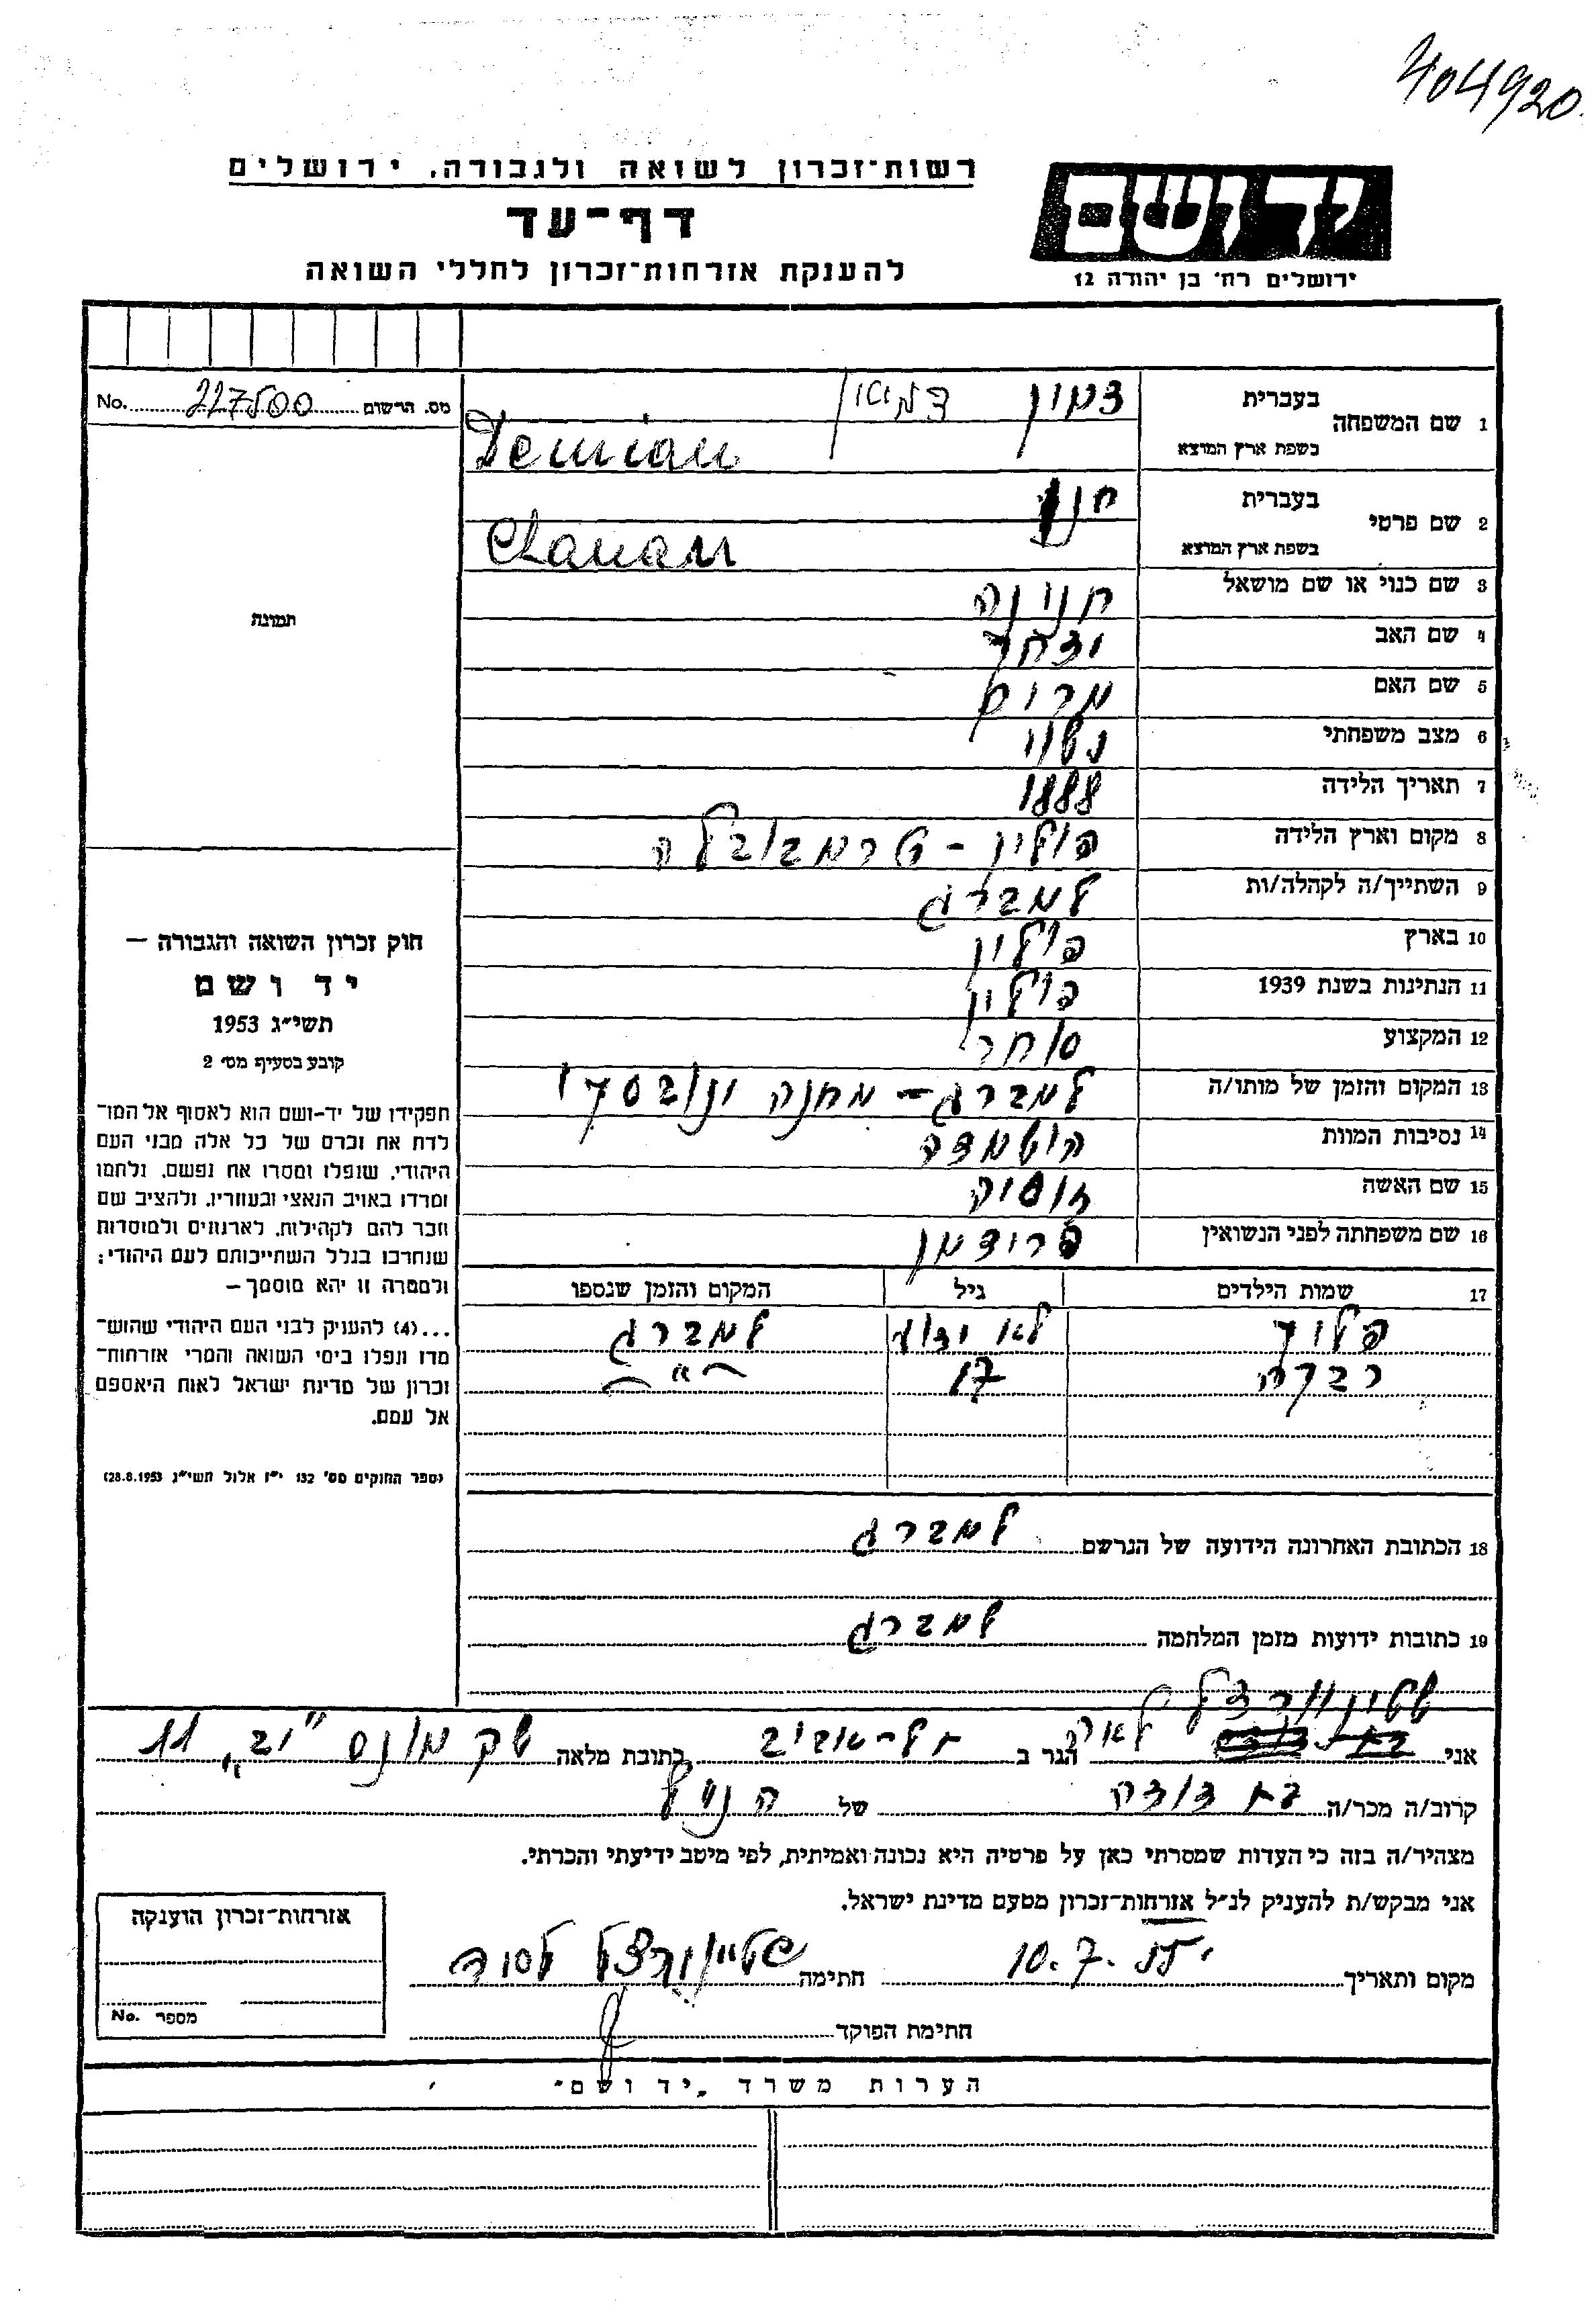 404920
יד ושם
ירושלים רח׳ בן יהודה 12
רשות־זכרון לשואה ולגבורה, ירושלים
דף־עד
להענקת אזרחות־זכרון לחללי השואה
מס. הרשום 227500 No.
1 שם המשפחה
בעברית דמיון דמיאן
בשפת ארץ המוצא Demian
2 שם פרטי
בעברית חנן
בשפת ארץ המוצא Chanan
3 שם כנוי או שם מושאל חנינה
4 שם האב יצחק
5 שם האם מרים
6 מצב משפחתי נשוי
7 תאריך הלידה 1888
8 מקום וארץ הלידה פולין - טרמבובלה
9 השתייך/ה לקהלה/ות למברג
10 בארץ פולין
11 הנתינות בשנת 1939 פולין
12 המקצוע סוחר
13 המקום והזמן של מותו/ה למברג - מחנה ינובסקי
14 נסיבות המוות השמדה
15 שם האשה
16 שם משפחתה לפני הנשואין פרידמן
17 שמות הילדים גיל המקום והזמן שנספו
לא ידוע למברג
רבקה 17 -"-
18 הכתובת האחרונה הידועה של הנרשם למברג
19 כתובות ידועות מזמן המלחמה למברג
תמונה
חוק זכרון השואה והגבורה —
יד ושם
תשי״ג 1953
קובע בסעיף מס׳ 2
תפקידו של יד-ושם הוא לאסוף אל המו־
לדת את זכרם של כל אלה מבני העם
היהודי, שנפלו ומסרו את נפשם, נלחמו
ומרדו באויב הנאצי ובעוזריו, ולהציב שם
וזכר להם לקהילות, לארגונים ולמוסדות
שנחרבו בגלל השתייכותם לעם היהודי;
ולמטרה זו יהא מוסמך —
...(4) להעניק לבני העם היהודי שהוש־
מדו ונפלו בימי השואה והמרי אזרחות־
זכרון של מדינת ישראל לאות היאספם
אל עמם.
(ספר החוקים מס׳ 132 י״ז אלול תשי״ג 28.8.1953)
שטיינוורצל
אני לאה הגר ב תל-אביב כתובת מלאה שק מונס "יב" 11
קרוב/ה מכר/ה בת דודה של הנ״ל
מצהיר/ה בזה כי העדות שמסרתי כאן על פרטיה היא נכונה ואמיתית, לפי מיטב ידיעתי והכרתי.
אני מבקש/ת להעניק לנ״ל אזרחות־זכרון מטעם מדינת ישראל.
מקום ותאריך 10.7.55 חתימה שטיינוורצל
חתימת הפוקד
אזרחות־זכרון הוענקה
מספר No.
הערות משרד „יד ושם״